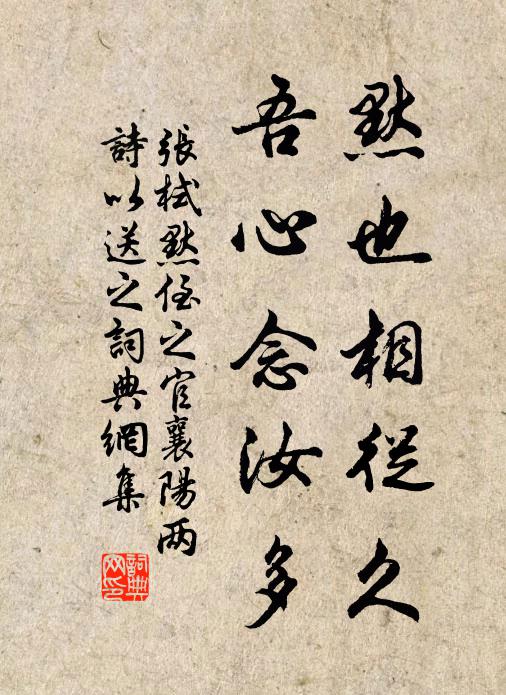 默也相從久
吾心念汝多
張栻默侄之官襄陽兩
詩以送之詞典網集
詞典
网印